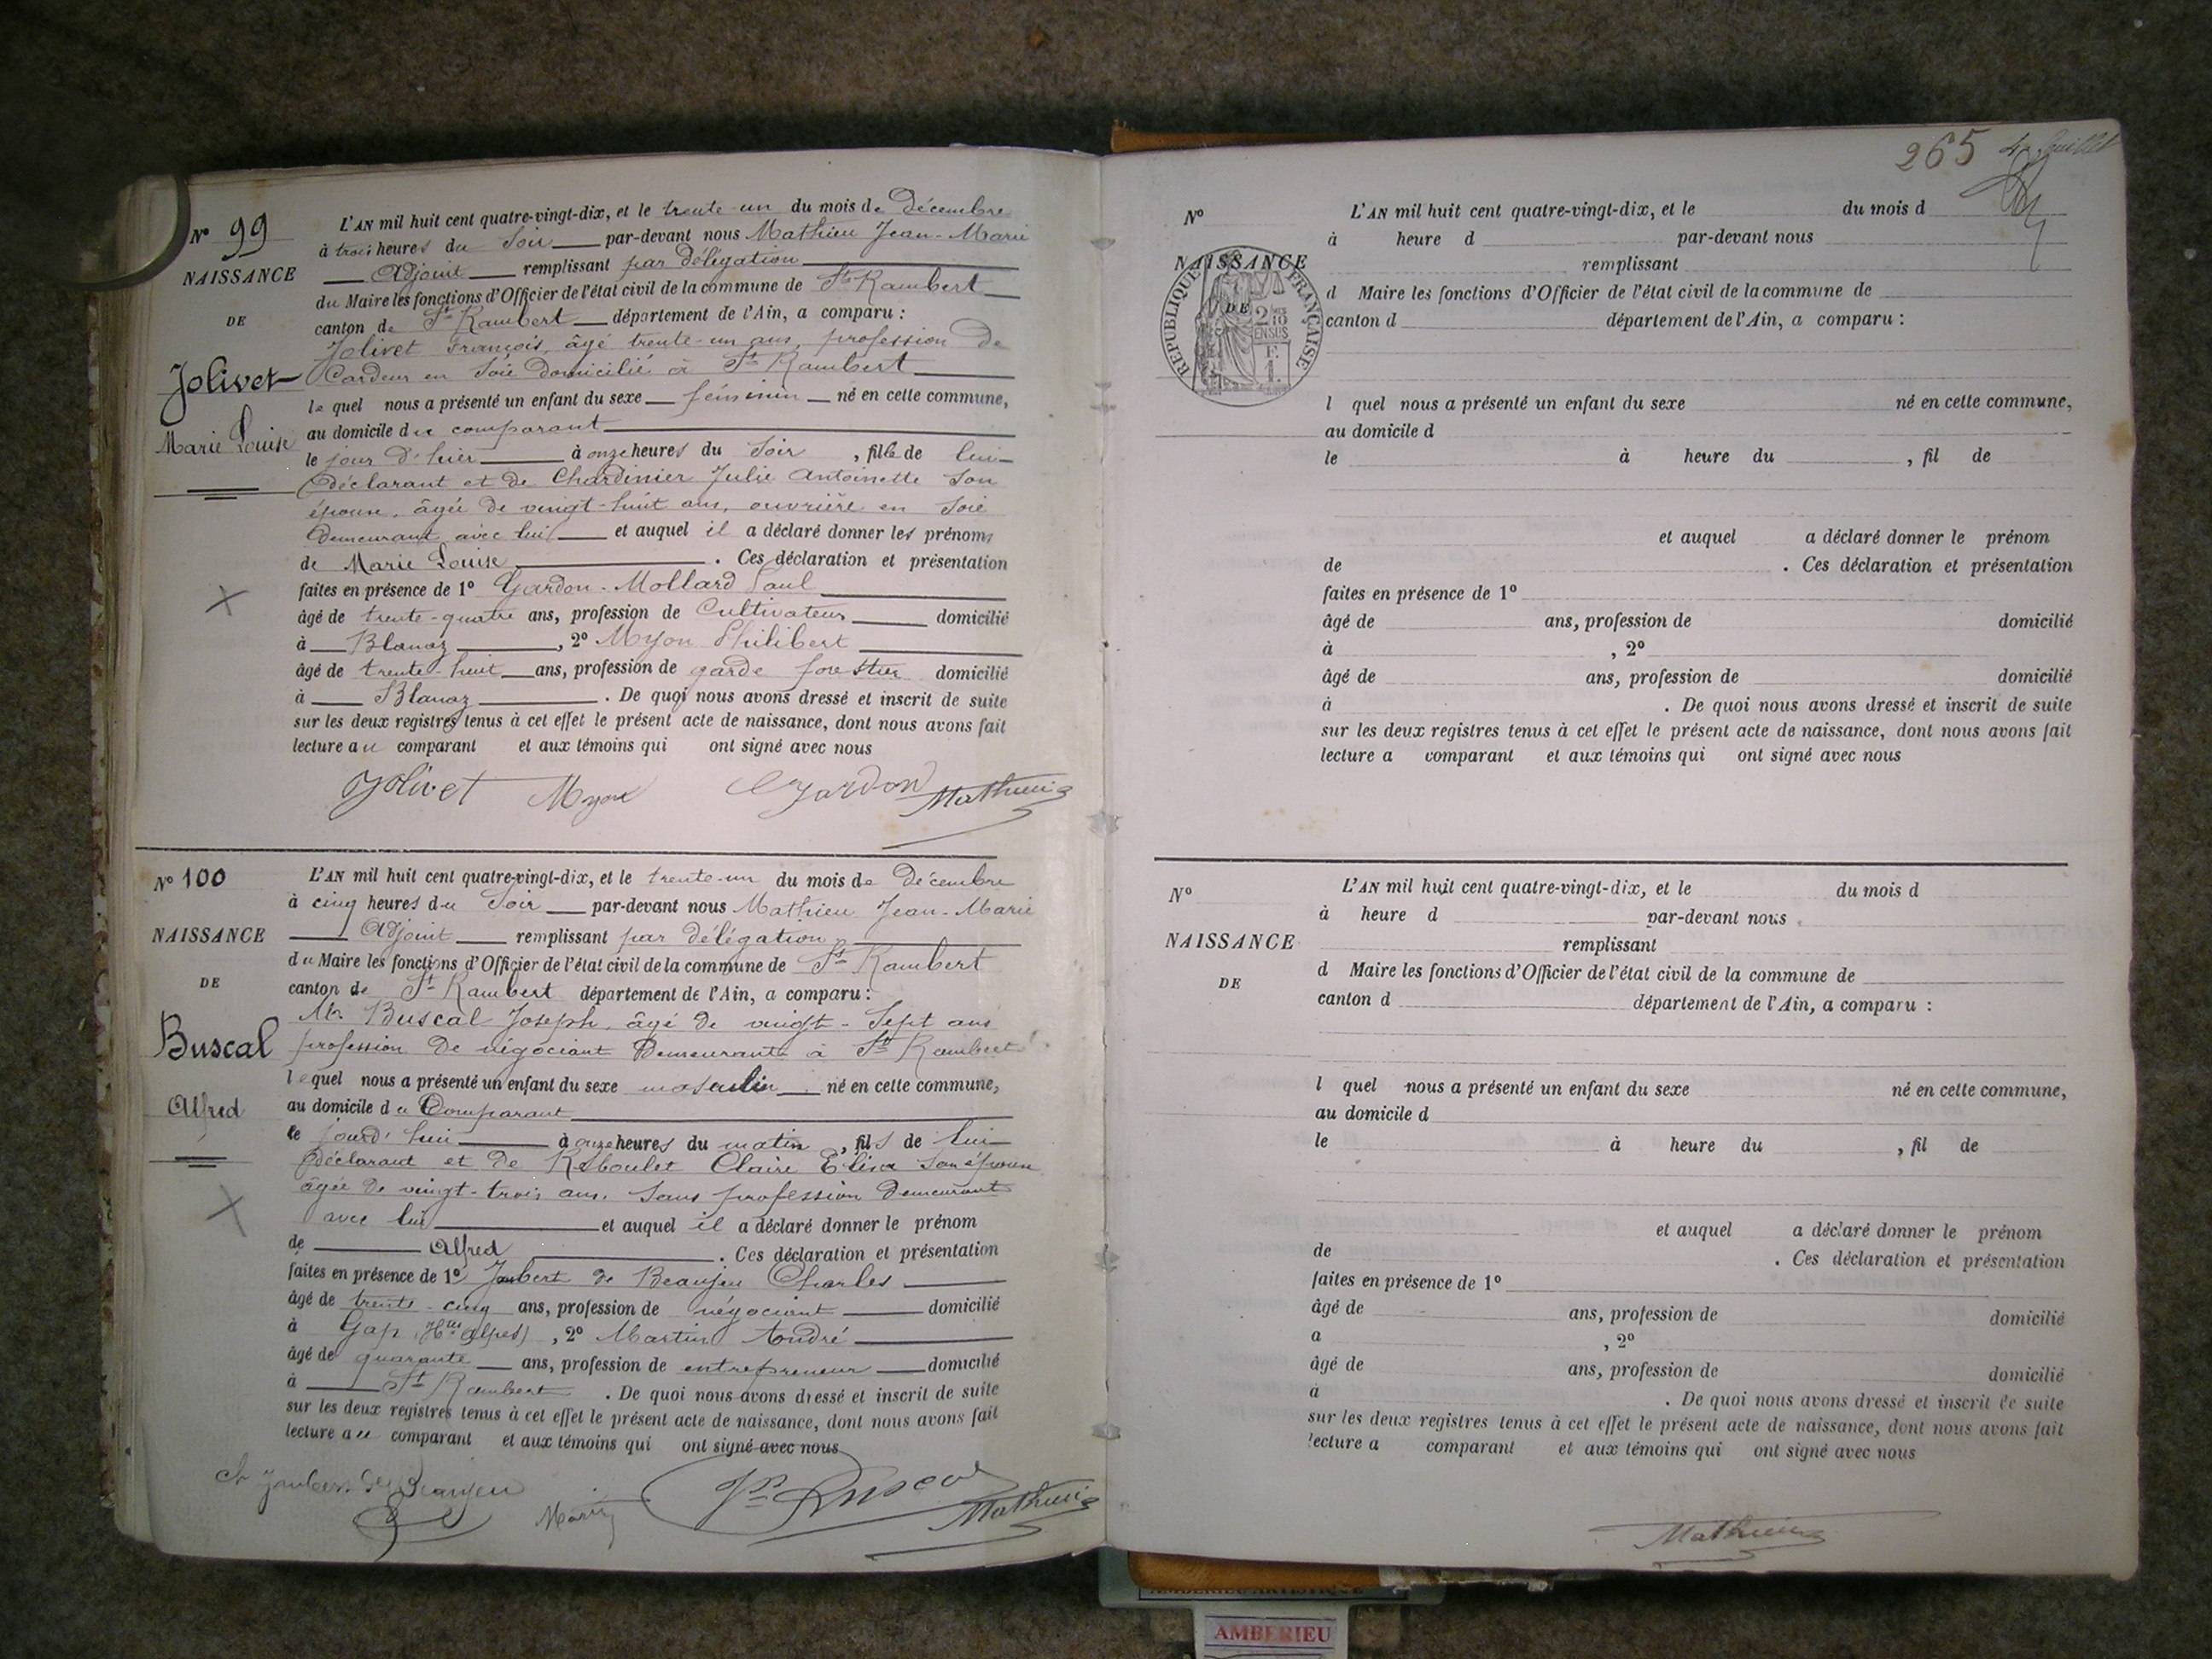 Nº 99
NAISSANCE
DE
Jolivet
Marie Louise
L'AN mil huit cent quatre-vingt-dix, et le trente-un du mois de Décembre
à trois heures du Soir par-devant nous Mathieu Jean-Marie
Adjoint remplissant par délégation
du Maire les fonctions d'Officier de l'état civil de la commune de St Rambert
canton de St Rambert département de l'Ain, a comparu :
Jolivet François, âgé trente-un ans, profession de
Cardeur en Soie domicilié à St Rambert
lequel nous a présenté un enfant du sexe féminin né en cette commune,
au domicile du comparant
le jour d'hier à onze heures du Soir, fille de lui
Déclarant et de Chardinier Julie Antoinette Son
épouse, âgée de vingt-huit ans, ouvrière en Soie
demeurant avec lui et auquel il a déclaré donner les prénoms
de Marie Louise. Ces déclaration et présentation
faites en présence de 1º Gardon-Mollard Paul
âgé de trente-quatre ans, profession de Cultivateur domicilié
à Blanaz, 2º Myon Philibert
âgé de trente-huit ans, profession de garde forestier domicilié
à Blanaz. De quoi nous avons dressé et inscrit de suite
sur les deux registres tenus à cet effet le présent acte de naissance, dont nous avons fait
lecture au comparant et aux témoins qui ont signé avec nous
Jolivet Myon Gardon Mathieu
Nº 100
NAISSANCE
DE
Buscal
Alfred
L'AN mil huit cent quatre-vingt-dix, et le trente-un du mois de Décembre
à cinq heures du Soir par-devant nous Mathieu Jean-Marie
Adjoint remplissant par délégation
du Maire les fonctions d'Officier de l'état civil de la commune de St Rambert
canton de St Rambert département de l'Ain, a comparu :
Mr Buscal Joseph, âgé de vingt-Sept ans
profession de négociant Demeurant à St Rambert
lequel nous a présenté un enfant du sexe masculin né en cette commune,
au domicile du Comparant
le jourd'hui à onze heures du matin, fils de lui
Déclarant et de Reboulet Claire Elisa Son épouse
âgée de vingt-trois ans, Sans profession Demeurant
avec lui et auquel il a déclaré donner le prénom
de Alfred. Ces déclaration et présentation
faites en présence de 1º Joubert de Beaujeu Charles
âgé de trente-cinq ans, profession de négociant domicilié
à Gap (Htes Alpes), 2º Martin André
âgé de quarante ans, profession de entrepreneur domicilié
à St Rambert. De quoi nous avons dressé et inscrit de suite
sur les deux registres tenus à cet effet le présent acte de naissance, dont nous avons fait
lecture au comparant et aux témoins qui ont signé avec nous
Ch Joubert de Beaujeu Martin Jh Buscal Mathieu
265
Nº
NAISSANCE
DE
REPUBLIQUE FRANÇAISE
L'AN mil huit cent quatre-vingt-dix, et le du mois d
à heure d par-devant nous
remplissant
d Maire les fonctions d'Officier de l'état civil de la commune de
canton d département de l'Ain, a comparu :
l quel nous a présenté un enfant du sexe né en cette commune,
au domicile d
le à heure du , fil de
et auquel a déclaré donner le prénom
de . Ces déclaration et présentation
faites en présence de 1º
âgé de ans, profession de domicilié
à , 2º
âgé de ans, profession de domicilié
à . De quoi nous avons dressé et inscrit de suite
sur les deux registres tenus à cet effet le présent acte de naissance, dont nous avons fait
lecture a comparant et aux témoins qui ont signé avec nous
Nº
NAISSANCE
DE
L'AN mil huit cent quatre-vingt-dix, et le du mois d
à heure d par-devant nous
remplissant
d Maire les fonctions d'Officier de l'état civil de la commune de
canton d département de l'Ain, a comparu :
l quel nous a présenté un enfant du sexe né en cette commune,
au domicile d
le à heure du , fil de
et auquel a déclaré donner le prénom
de . Ces déclaration et présentation
faites en présence de 1º
âgé de ans, profession de domicilié
a , 2º
âgé de ans, profession de domicilié
à . De quoi nous avons dressé et inscrit de suite
sur les deux registres tenus à cet effet le présent acte de naissance, dont nous avons fait
lecture a comparant et aux témoins qui ont signé avec nous
Mathieu
AMBERIEU